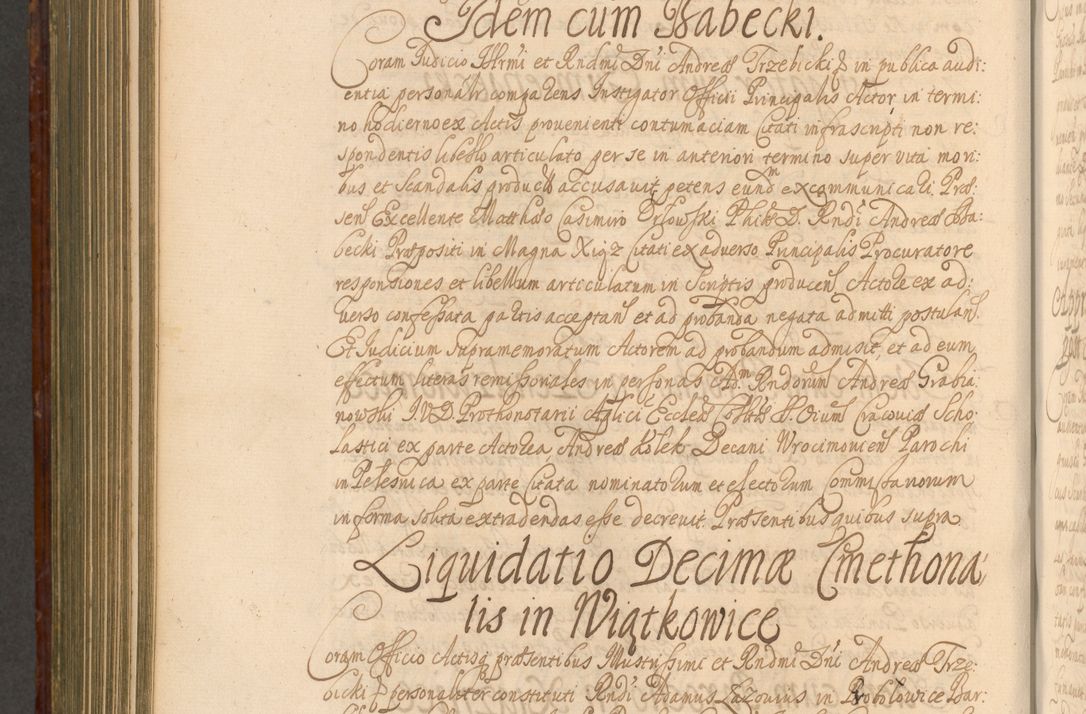 Idem cum Babecki.
Coram Judicio Illrmi et Rndmi Dni Andreæ Trzebicki in publica audi:
entia personalr comparens Instigator Officii Principalis Actor in termi:
no hodierno ex Actis provenienti contumaciam Citati infrascripti non re:
spondentis libello articulato per se in anteriori termino super vita mori:
bus et scandalis producto accusavit petens eundm excommunicari. Præ:
sens Excellente Matthæo Casimiro Orłowski Phil: D. Rndi Andreæ Ba:
becki Præpositi in Magna Xiąz Citati ex adverso Principalis Procuratore
responsiones et libellum articulatum in Scriptis producens Actore ex ad:
verso confessata partis acceptans et ad probanda negata admitti postulans
Et Judicium supramemoratum Actorem ad probandum admisit, et ad eum
effectum literas remissoriales in personas Adm Rndorum Andreæ Grabia:
nowski IVD Prothonotarii Aplici Ecclæ Colltæ SS. Oium Cracoviæ Scho:
lastici ex parte Actorea, Andreæ Kołek Decani Wrocimoviens Parochi
in Pełesnica ex parte Citata nominatorum et electorum Commissariorum
in forma solita extradendas esse decrevit. Præsentibus quibus supra
Liquidatio Decimæ Cmethona,
lis in Wiątkowice
Coram Officio Actisq præsentibus Illustrissimi et Rndmi Dni Andreæ Trze:
bicki personaliter constituti Rndi Adamus Łazovius in Probołowice Par: